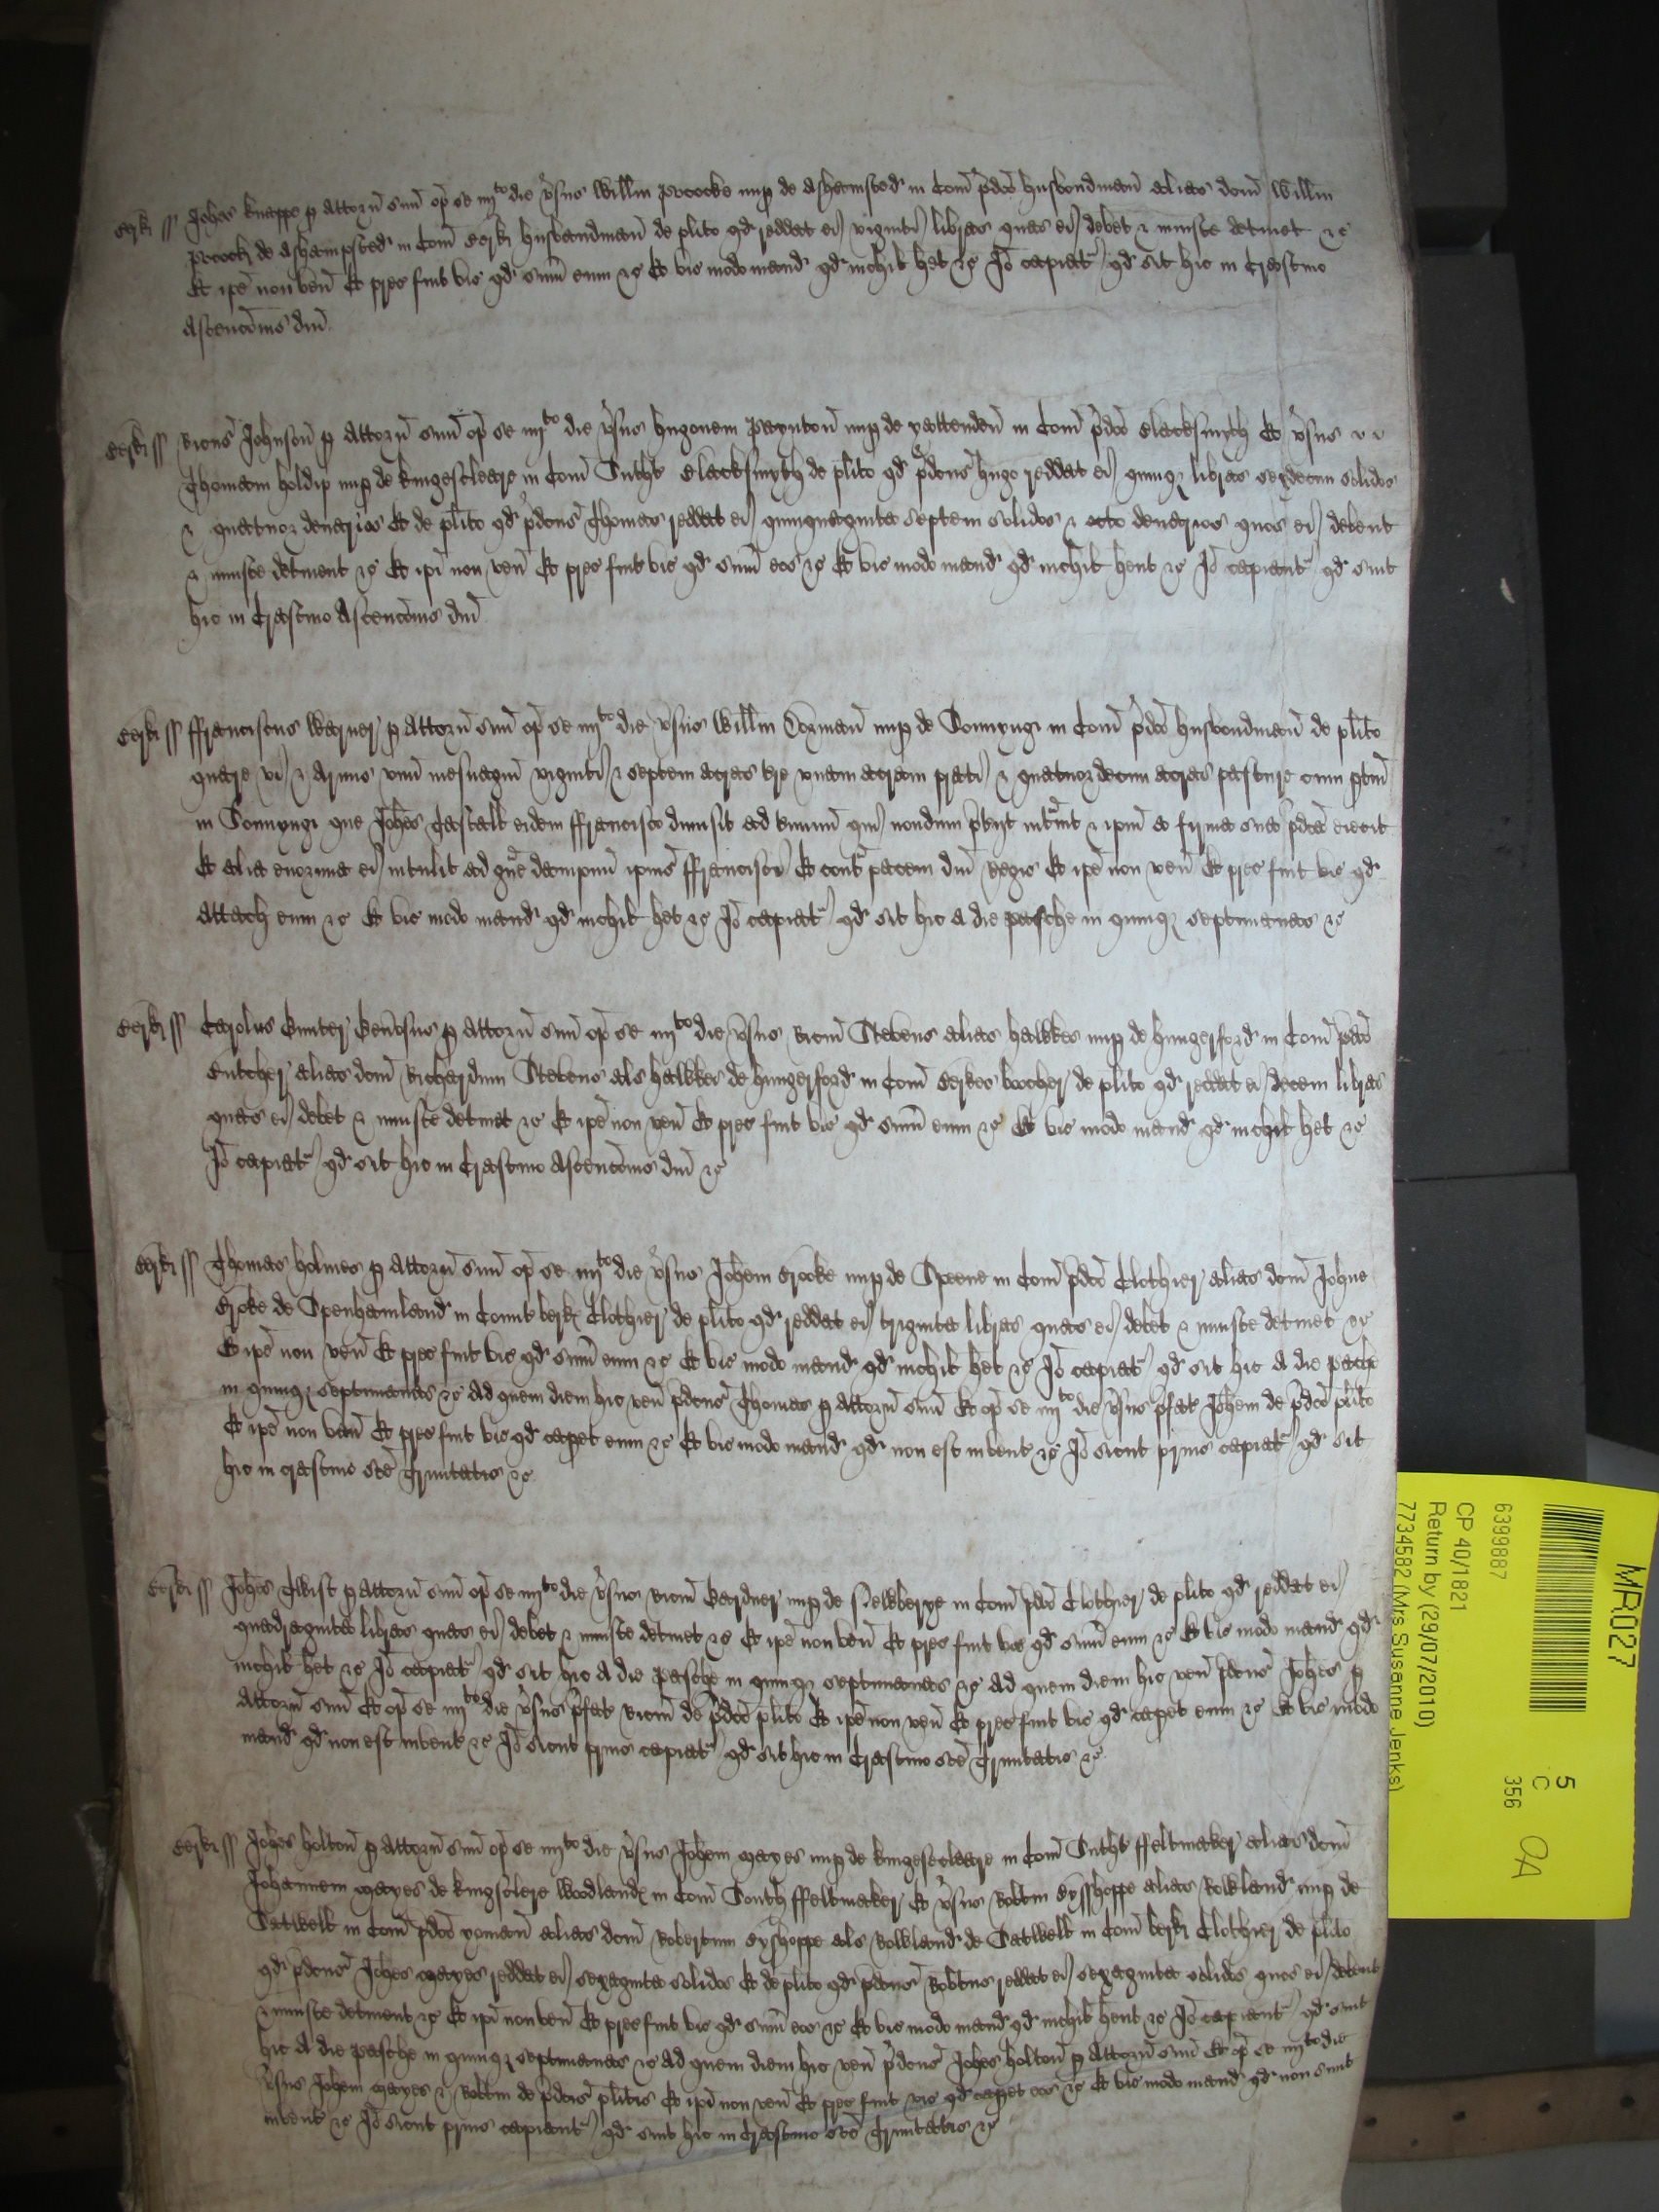 Berk ss Johes Knappe p attorn suu op se iiijto die vsus Willm Pococke nup de Asshamsted in Com pdco husbondman alias dcm Willm
Pocock de Asshampsted in Com Berk husbandman de plito qd reddat ei viginti libras quas ei debet & iniuste detinet &c
Et ipe non ven Et prec fuit vic qd sum eum &c Et vic modo mand qd nichil het &c Io capiat qd sit hic in Crastino
Ascencois dni
Berk ss Ricus Johnson p attorn suu op se iiijto die vsus Hugonem Paynton nup de Yattenden in Com pdco Blacksmyth Et vsus
Thomam Holdip nup de Kingescleare in Com Sutht Blacksmyth de plito qd pdcus Hugo reddat ei quinq libras sexdecim solidos
& quattuor denarios Et de plito qd pdcus Thomas reddat ei quinquaginta septem solidos & octo denarios quos ei debent
& iniuste detinent &c Et ipi non ven Et prec fuit vic qd sum eos &c Et vic modo mand qd nichil hent &c Io capiant qd sint
hic in Crastino Ascencois dni
Berk ss Ffranciscus Warner p attorn suu op se iiijto die vsus Willm Dorman nup de Sonnyng in Com pdco husbondman de plito
quare vi & armis unu mesuagiu viginti & septem acras tre unam acram prati & quatuordecim acras pasture cum ptin
in Sonnyng que Johes Tastall eidem Ffrancisco dimisit ad tminu qui nondum pteryt intravit & ipm a firma sua pdca eiecit
Et alia enormia ei intulit ad grave dampnu ipius Ffrancisci Et contra pacem dni Regis Et ipe non ven Et prec fuit vic qd
attach eum &c Et vic modo mand qd nichil het &c Io capiat qd sit hic a die pasche in quinq septimanas &c
Berk ss Carolus Gunter Genosus p attorn suu op se iiijto die vsus Ricm Stevens alias Hawkes nup de Hungerford in Com pdco
Butcher alias dcm Richardum Stevens als Hawkes de Hungerford in Com Berkes boocher de plito qd reddat ei decem libras
quas ei debet & iniuste detinet &c Et ipe non ven Et prec fuit vic qd sum eum &c Et vic modo mand qd nichil het &c
Io capiat qd sit hic in Crastino Ascencois dni &c
Berk ss Thomas Holmes p attorn suu op se iiijto die vsus Johem Brooke nup de Speene in Com pdco Clothier alias dcm Johne
Broke de Spenhamland in Comit berk Clothier de plito qd reddat ei triginta libras quas ei debet & iniuste detinet &c
Et ipe non ven Et prec fuit vic qd sum eum &c Et vic modo mand qd nichil het &c Io capiat qd sit hic a die pasche
in quinq septimanas &c ad quem diem hic ven pdcus Thomas p attorn suu Et op se iiijto die vsus pfat Johem de pdco plito
Et ipe non ven Et prec fuit vic qd capet eum &c Et vic modo mand qd non est invent &c Io sicut prius capiat qd sit
hic in crastino sce Trinitatis &c
Berk ss Johes Twist p attorn suu op se iiijto die vsus Ricm Gardner nup de Newberye in Com pdco Clothier de plito qd reddat ei
quadraginta libras quas ei debet & iniuste detinet &c Et ipe non ven Et prec fuit vic qd sum eum &c Et vic modo mand qd
nichil het &c Io capiat qd sit hic a die Pasche in quinq septimanas &c ad quem diem hic ven pdcus Johes p
attorn suu Et op se iiijto die vsus pfat Ricm de pdco plito Et ipe non ven Et prec fuit vic qd capet eum &c Et vic modo
mand qd non est invent &c Io sicut prius capiat qd sit hic in Crastino sce Trinitatis &c
Berk ss Johes Holton p attorn suu op se iiijto die vsus Johem Mayes nup de Kingescleare in Com Sutht ffeltmaker alias dcm
Johannem Mayes de Kingsclere Woodland in Com South ffeltmaker Et vsus Robtm Bysshoppe alias Rowland nup de
Satwell in Com pdco yoman alias dcm Robertum Byshoppe als Rowland de Satwell in Com berk Clothier de plito
qd pdcus Johes Mayes reddat ei sexaginta solidos Et de plito qd pdcus Robtus reddat ei sexaginta solidos quos ei debent
& iniuste detinent &c Et ipi non ven Et prec fuit vic qd sum eos &c Et vic modo mand qd nichil hent &c Io capiant qd sint
hic a die Pasche in quinq septimanas &c ad quem diem hic ven pdcus Johes Holton p attorn suu Et op se iiijto die
vsus Johem Mayes & Robtm de pdcis plitis Et ipi non ven Et prec fuit vic qd capet eos &c Et vic modo mand qd non sunt
invent &c Io sicut prius capiant qd sint hic in Crastino sce Trinitatis &c
MR027
5
C
356
6399887
CP 40/1821
Return by (29/07/2010)
7734582 (Mrs Susanne Jenks)